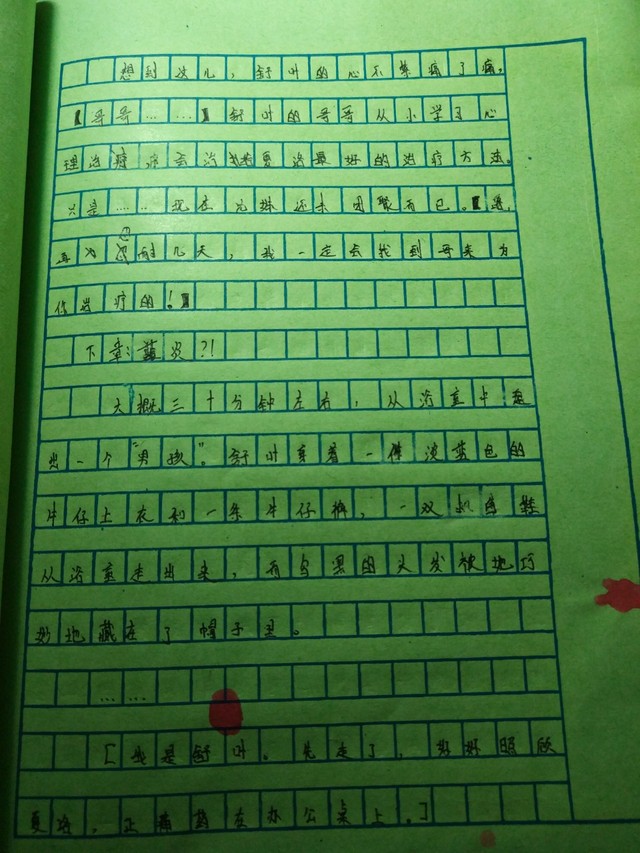 想到这儿，舒叶的心不禁痛了痛。
【哥哥……】舒叶的哥哥从小学习心
理治疗 会治 最好的治疗方法。
只是……现在 还未团聚而已。【
再为 耐几天，我一定会找到哥来为
你治疗的！】
下章：蓝炎?!
大概三十分钟左右，从浴室中走
出一个“男孩”。舒叶穿着一件淡蓝色的
牛仔上衣和一条牛仔裤，一双 鞋
从浴室走出来，有乌黑的头发被她巧
妙地藏在了帽子里。
……
[我是舒叶。先走了，好好照顾
夏洛，正痛药在办公桌上。]